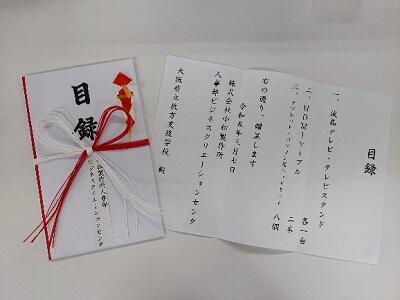 目録
小松製作所人事部
ビジネスクリエーションセンタ
目録
一、液晶テレビ・テレビスタンド 各一台
二、HDMIケーブル 二本
三、タブレット・パソコン用ヘッドセット 八個
右の通り、贈呈します
令和五年三月七日
株式会社小松製作所
人事部ビジネスクリエーションセンタ
大阪府立枚方支援学校 殿